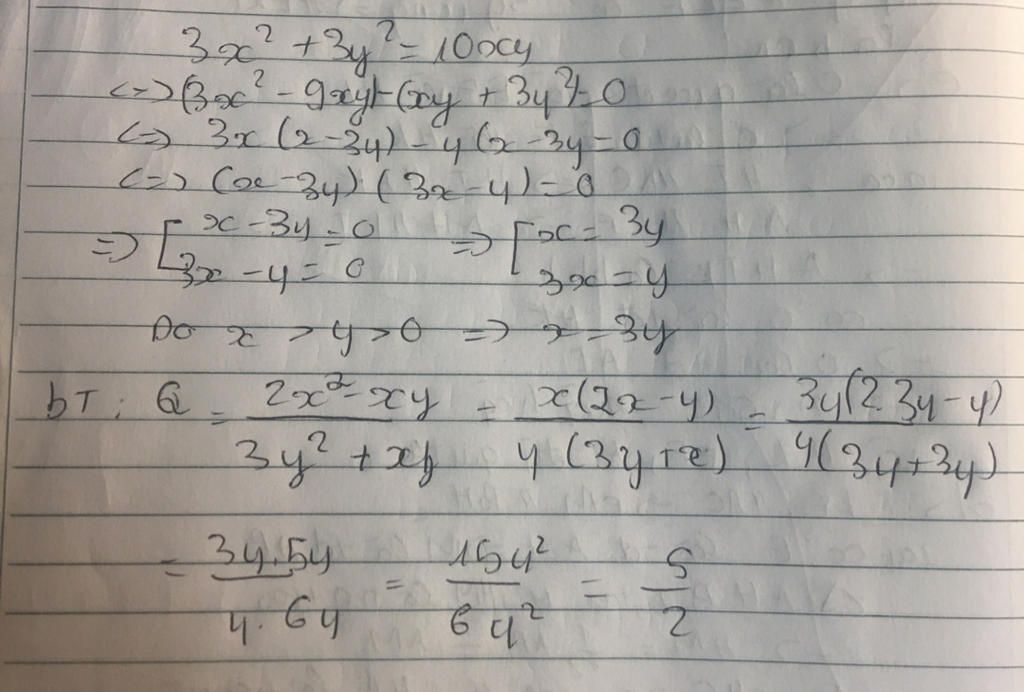 3x² + 3y² = 10xy
<=> (3x² - 9xy) - (xy + 3y²) = 0
<=> 3x (x - 3y) - y (x - 3y = 0
<=> (x - 3y) (3x - y) = 0
=> [ x - 3y = 0 => [ x = 3y
3x - y = 0 3x = y
Do x > y > 0 => x = 3y
bT : Q = 2x² - xy / 3y² + xy = x(2x - y) / y (3y + x) = 3y(2.3y - y) / y(3y + 3y)
= 3y.5y / y.6y = 15y² / 6y² = 5 / 2